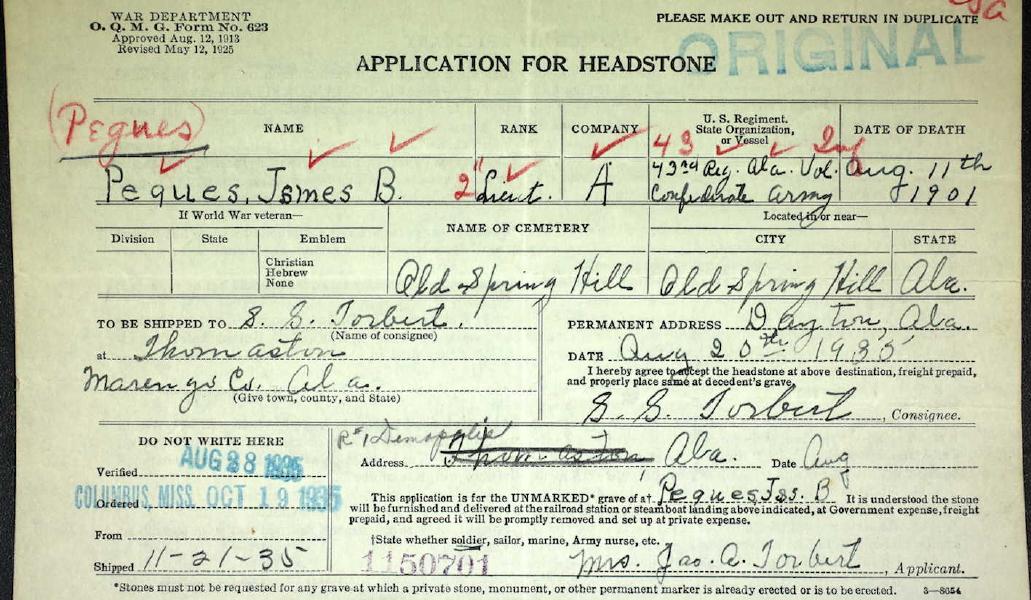 WAR DEPARTMENT
O. Q. M. G. Form No. 623
Approved Aug. 12, 1913
Revised May 12, 1925
PLEASE MAKE OUT AND RETURN IN DUPLICATE
ORIGINAL
APPLICATION FOR HEADSTONE
(Pegues)
NAME
RANK
COMPANY
U. S. Regiment.
State Organization,
or Vessel
DATE OF DEATH
43 Inf
Peques, James B.
2" Lieut.
A
43rd Reg. Ala. Vol.
Confederate Army
Aug. 11th
1901
If World War veteran—
Division
State
Emblem
Christian
Hebrew
None
NAME OF CEMETERY
Located in or near—
CITY
STATE
Old Spring Hill
Old Spring Hill
Ala.
TO BE SHIPPED TO S. S. Torbert.
(Name of consignee)
at Thomaston
Marengo Co. Ala.
(Give town, county, and State)
PERMANENT ADDRESS Dayton, Ala.
DATE Aug 20th 1935
I hereby agree to accept the headstone at above destination, freight prepaid,
and properly place same at decedent's grave.
S. S. Torbert, Consignee.
DO NOT WRITE HERE
Verified AUG 28 1935
Ordered COLUMBUS, MISS. OCT 19 1935
From
Shipped 11-21-35
R#1 Demopolis
Address Thomaston, Ala. Date Aug
This application is for the UNMARKED* grave of a† Peques Jas. B. It is understood the stone
will be furnished and delivered at the railroad station or steamboat landing above indicated, at Government expense, freight
prepaid, and agreed it will be promptly removed and set up at private expense.
†State whether soldier, sailor, marine, Army nurse, etc.
1150701
Mrs. Jas. A. Torbert, Applicant.
*Stones must not be requested for any grave at which a private stone, monument, or other permanent marker is already erected or is to be erected. 3—8054